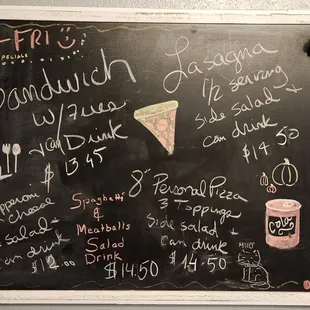 -FRI
Sandwich
w/Fries
+ can Drink
$ 13.45
Lasagna
1/2 serving
side salad +
can drink
$14.50
Cheese
salad +
can drink
$12.00
Spaghetti
&
Meatballs
Salad
Drink
$14.50
8" Personal Pizza
3 Toppings
Side salad +
Can drink
$14.50